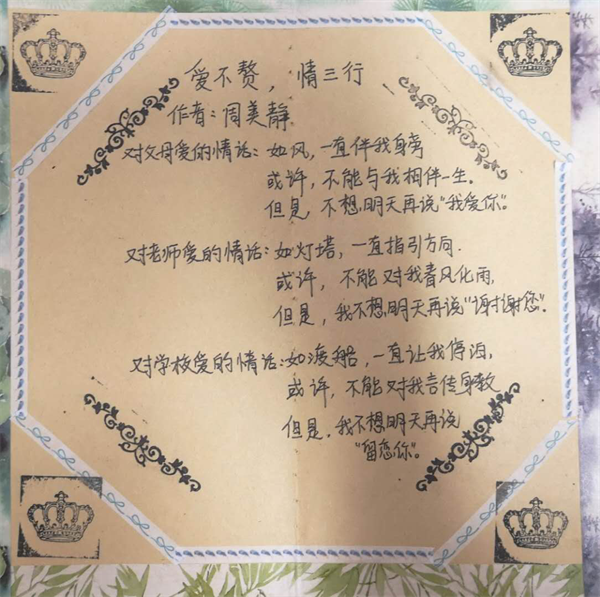 爱不赘，情三行
作者：周美静
对父母爱的情话：如风，一直伴我身旁
或许，不能与我相伴一生.
但是，不想明天再说“我爱你”。
对老师爱的情话：如灯塔，一直指引方向.
或许，不能对我春风化雨，
但是，我不想明天再说“谢谢您”.
对学校爱的情话：如渡船，一直让我停泊，
或许，不能对我言传身教
但是，我不想明天再说
“留恋你”。